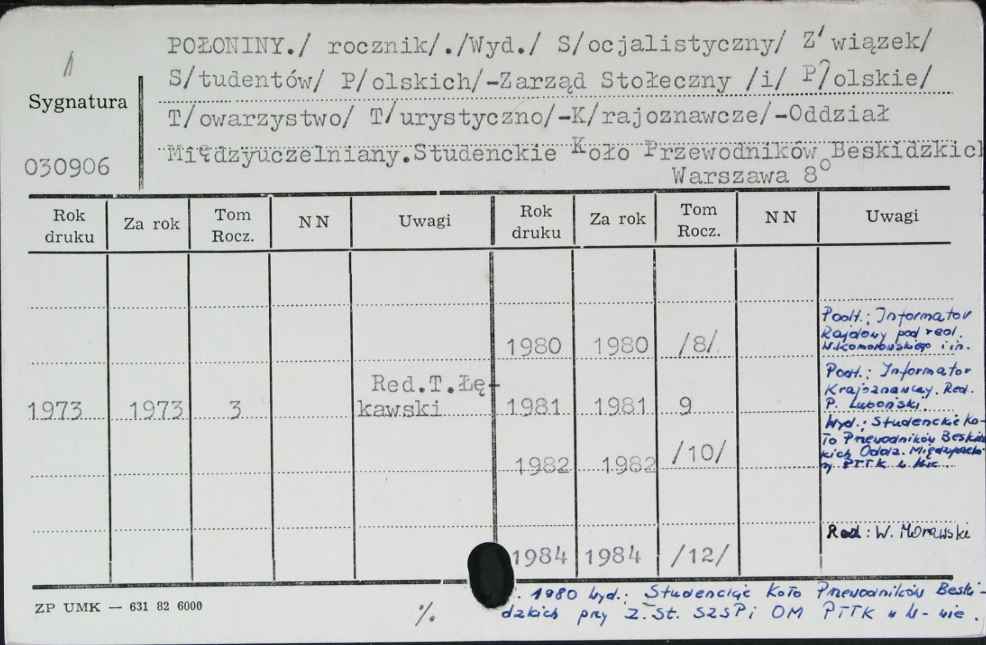 POŁONINY./ rocznik/./Wyd./ S/ocjalistyczny/ Z/wiązek/
S/tudentów/ P/olskich/-Zarząd Stołeczny /i/ P/olskie/
Sygnatura
T/owarzystwo/ T/urystyczno/-K/rajoznawcze/-Oddział
030906
Międzyuczelniany.Studenckie Koło Przewodników Beskidzkich
Warszawa 8°
Rok druku Za rok Tom Rocz. NN Uwagi Rok druku Za rok Tom Rocz. NN Uwagi
1980 1980 /8/ Podt.: Informator
Rajdowy pod red.
W.Komorowskiego i in.
1973 1973 3 Red.T.Łę-
kawski
1981 1981 9 Podt.: Informator
Krajoznawczy. Red.
P. Luboński.
1982 1982 /10/ Wyd.: Studenckie Ko-
ło Przewodników Beskidz-
kich Oddz.
PTTK
1984 1984 /12/ Red: W. Morawski
1980 Wyd.: Studenckie Koło Przewodników Beski-
dzkich przy Z.St. SZSP i OM PTTK w W-wie.
ZP UMK — 631 82 6000
%.